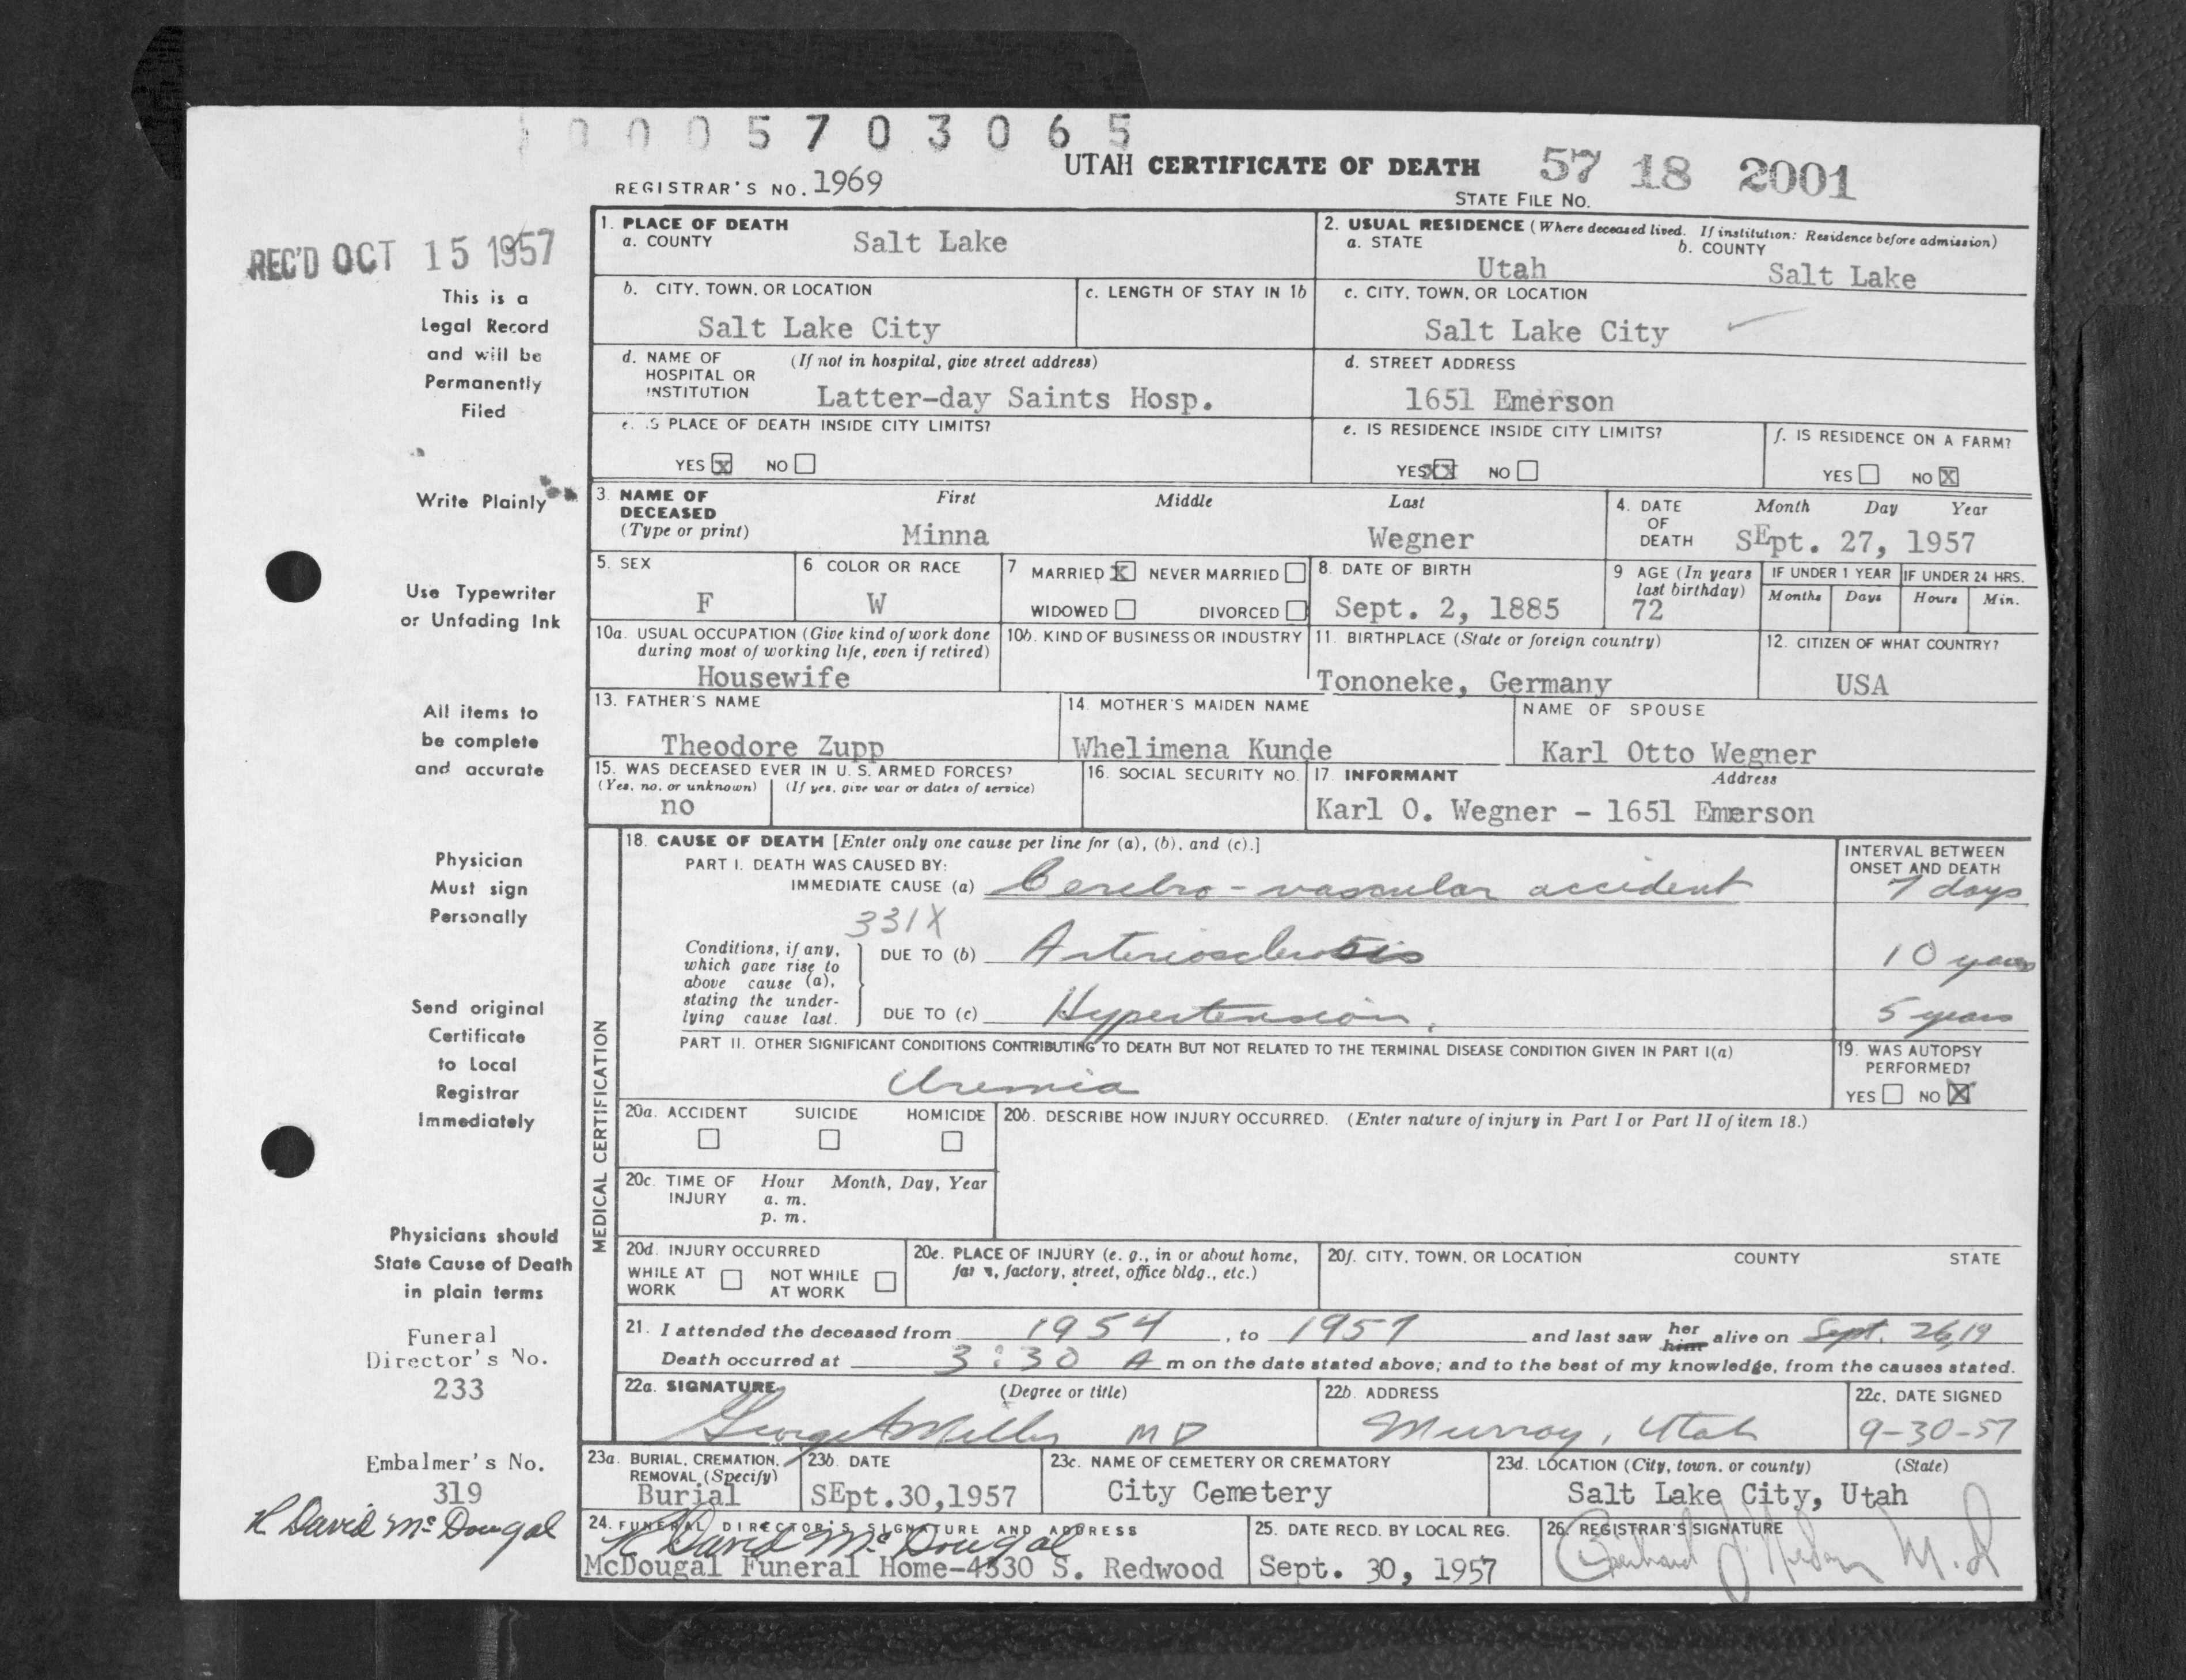 0 0 0 5 7 0 3 0 6 5
UTAH CERTIFICATE OF DEATH 57 18 2001
REGISTRAR'S NO. 1969
STATE FILE NO.
REC'D OCT 15 1957
This is a
Legal Record
and will be
Permanently
Filed
Write Plainly
Use Typewriter
or Unfading Ink
All items to
be complete
and accurate
Physician
Must sign
Personally
Send original
Certificate
to Local
Registrar
Immediately
Physicians should
State Cause of Death
in plain terms
Funeral
Director's No.
233
Embalmer's No.
319
R David McDougal
1. PLACE OF DEATH
a. COUNTY Salt Lake
2. USUAL RESIDENCE (Where deceased lived. If institution: Residence before admission)
a. STATE Utah b. COUNTY Salt Lake
b. CITY, TOWN, OR LOCATION Salt Lake City
c. LENGTH OF STAY IN 1b
c. CITY, TOWN, OR LOCATION Salt Lake City
d. NAME OF (If not in hospital, give street address)
HOSPITAL OR
INSTITUTION Latter-day Saints Hosp.
d. STREET ADDRESS
1651 Emerson
e. IS PLACE OF DEATH INSIDE CITY LIMITS?
YES X NO
e. IS RESIDENCE INSIDE CITY LIMITS?
YES XX NO
f. IS RESIDENCE ON A FARM?
YES NO X
3. NAME OF DECEASED (Type or print) First Middle Last
Minna Wegner
4. DATE OF DEATH Month Day Year
SEpt. 27, 1957
5. SEX F
6 COLOR OR RACE W
7 MARRIED X NEVER MARRIED
WIDOWED DIVORCED
8. DATE OF BIRTH
Sept. 2, 1885
9 AGE (In years last birthday)
72
IF UNDER 1 YEAR IF UNDER 24 HRS.
Months Days Hours Min.
10a. USUAL OCCUPATION (Give kind of work done
during most of working life, even if retired)
Housewife
10b. KIND OF BUSINESS OR INDUSTRY
11. BIRTHPLACE (State or foreign country)
Tononeke, Germany
12. CITIZEN OF WHAT COUNTRY?
USA
13. FATHER'S NAME
Theodore Zupp
14. MOTHER'S MAIDEN NAME
Whelimena Kunde
NAME OF SPOUSE
Karl Otto Wegner
15. WAS DECEASED EVER IN U. S. ARMED FORCES?
(Yes, no, or unknown) (If yes, give war or dates of service)
no
16. SOCIAL SECURITY NO.
17. INFORMANT Address
Karl O. Wegner - 1651 Emerson
MEDICAL CERTIFICATION
18. CAUSE OF DEATH [Enter only one cause per line for (a), (b), and (c).]
PART I. DEATH WAS CAUSED BY:
IMMEDIATE CAUSE (a) Cerebro-vascular accident
INTERVAL BETWEEN
ONSET AND DEATH
7 days
331X
Conditions, if any,
which gave rise to
above cause (a),
stating the under-
lying cause last.
DUE TO (b) Arteriosclerosis 10 years
DUE TO (c) Hypertension. 5 years
PART II. OTHER SIGNIFICANT CONDITIONS CONTRIBUTING TO DEATH BUT NOT RELATED TO THE TERMINAL DISEASE CONDITION GIVEN IN PART I(a)
Uremia
19. WAS AUTOPSY
PERFORMED?
YES NO X
20a. ACCIDENT SUICIDE HOMICIDE
20b. DESCRIBE HOW INJURY OCCURRED. (Enter nature of injury in Part I or Part II of item 18.)
20c. TIME OF INJURY Hour Month, Day, Year
a. m.
p. m.
20d. INJURY OCCURRED
WHILE AT WORK NOT WHILE AT WORK
20e. PLACE OF INJURY (e. g., in or about home,
farm, factory, street, office bldg., etc.)
20f. CITY, TOWN, OR LOCATION COUNTY STATE
21. I attended the deceased from 1954, to 1957 and last saw her him alive on Sept. 26, 19
Death occurred at 3:30 A m on the date stated above; and to the best of my knowledge, from the causes stated.
22a. SIGNATURE (Degree or title)
George A Miller MD
22b. ADDRESS
Murray, Utah
22c. DATE SIGNED
9-30-57
23a. BURIAL, CREMATION,
REMOVAL (Specify)
Burial
23b. DATE
SEpt.30,1957
23c. NAME OF CEMETERY OR CREMATORY
City Cemetery
23d. LOCATION (City, town, or county) (State)
Salt Lake City, Utah
24. FUNERAL DIRECTOR'S SIGNATURE AND ADDRESS
R David McDougal
McDougal Funeral Home-4330 S. Redwood
25. DATE RECD. BY LOCAL REG.
Sept. 30, 1957
26. REGISTRAR'S SIGNATURE
M.D